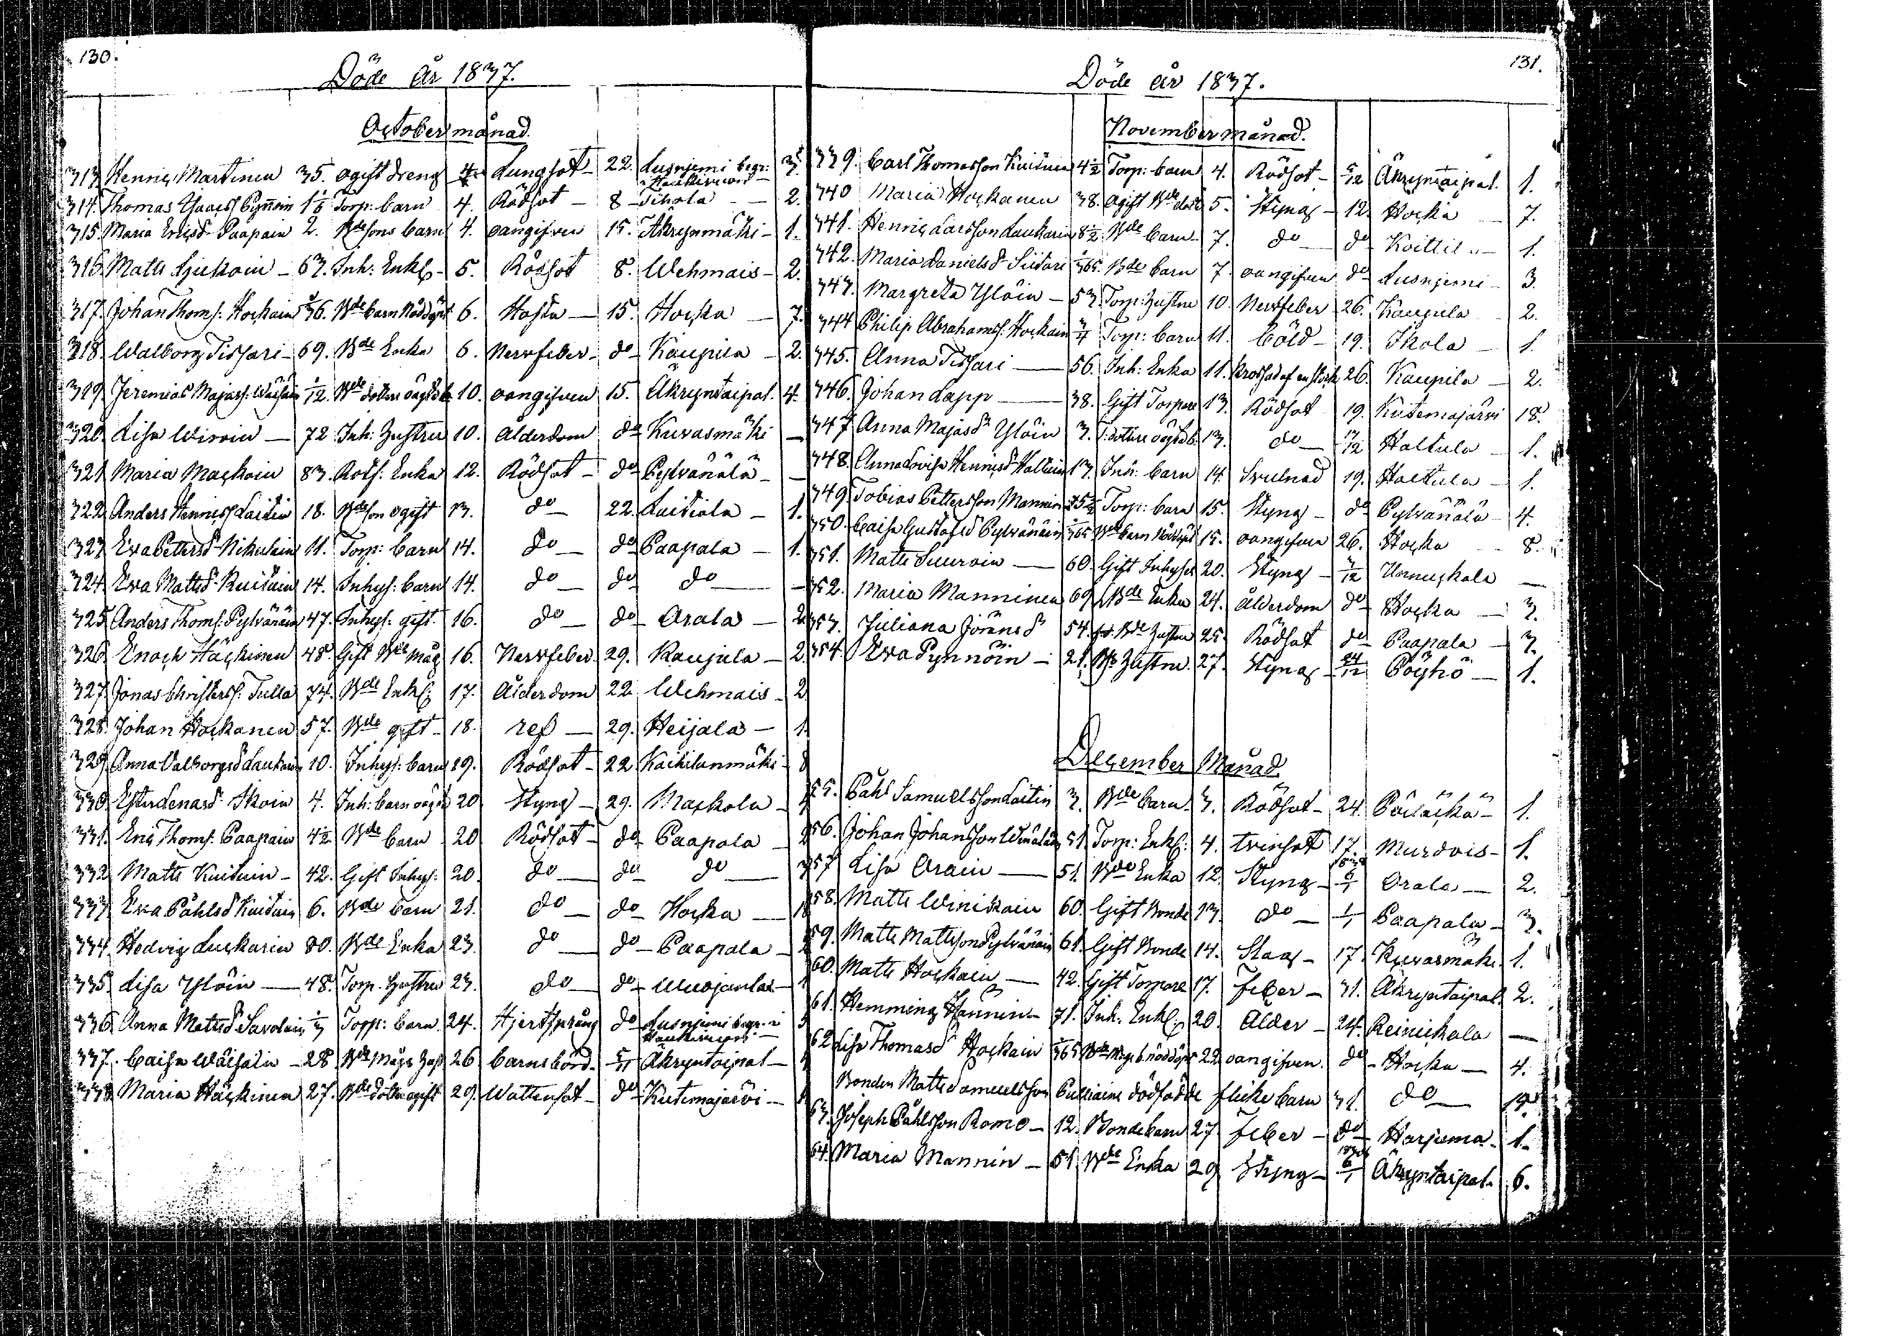 130.
Döde år 1837.
October månad.
313. Henric Martinen 35. ogift dreng 4. Lungsot - 22. Lusnjemi begr: i 3.
314. Thomas 1 1/6 Torp: barn 4. Rödsot - 8 - Sikola - 2.
315. Maria Paapain 2. Bdesons barn 4. oangifven 15. Äkrynmäki - 1.
316. Matts - 63. Inh: Enkl. 5. Rödsot 8. Wehmais - 2.
317. Johan Thoms. Hockain Bde barn 6. Hosta - 15. Hocka - 7.
318. Walborg Tissari - 69. Bde Enka 6. Nervfeber - do - Kaupila - 2.
319. Jeremias 1/12 10. oangifven 15. Äkryntaipal. 4.
320. Lisa - 72 Inh: Hustru 10. Ålderdom do Kuvasmäki -
321. Maria Mackoin 83. Rotf: Enka 12. Rödsot - do Pylvänälä -
322. Anders Hennics. Laitin 18. Bdeson ogift 13. do - 22. Laitiala - 1.
323. Eva Petersdr Nikulain 11. Torp: barn 14. do - do Paapala - 1.
324. Eva Mattsdr Kuitain 14. Inhys: barn 14. do - do do -
325. Anders Thoms. Pylvänäin 47. Inhys: gift. 16. do - do - Orala - 2.
326. Enoch Häckinen 48 Gift Bde måg 16. Nervfeber 29. Kaupila - 2.
327. Jonas Christers. Tulla 74. Bde Enkl: 17. Ålderdom 22 Wehmais - 2
328. Johan Hockanen 57. Bde gift - 18. ref - 29. Heijala - 1.
329. Anna Valborgsdr Laukain 10. Inhys: barn 19. Rödsot - 22 Kaikilanmäki -
330. Ester Lenasdr Ikoin 4. Inh: barn 20 Styng - 29. Mackola -
331. Eric Thoms. Paapain 4 1/2 Bde barn 20 Rödsot - do Paapala -
332 Matts Kuituin - 42. Gift Inhys: 20. do - do do -
333. Eva Påhlsdr Kuituin 6. Bde barn 21. do - do Hocka -
334. Hedvig Luckarin 80. Bde Enka 23. do - do - Paapala -
335. Lisa Ylöin - 48. Torp. Hustru 23. do - do -
336. Anna Mattsdr Savolain 1/3 Torp: barn 24. Hjertsprång do Lusnjemi begr: i
337. Caisa Wäisäin - 28 Bde Mågs Hust 26 barnsbörd. 5/11 Äkryntaipal -
338. Maria Häckinen 27. Bde dotter ogift 29. Wattensot - do - Kutemajärvi -
131.
Döde år 1837.
November månad.
339. Carl Thomasson Kuituin 4 1/2 Torp: barn 4. Rödsot - 5/12 Äkryntaipal. 1.
340 Maria Hockanen 38. Ogift Bde dotr 5. Styng - 12. Hocka - 7.
341. Henric Larsson Laukarin 8 1/2 Bde barn 7. do - do Koittil - 1.
342. Maria Danielsdr Siitari 1/365. Bde barn 7. oangifven do Lusnjemi - 3.
343. Margreta Ylöin - 53. Torp: Hustru 10. Nervfeber 26. Kaupila 2.
344 Philip Abrahams. Hockain 3/4 Torp: barn 11. Cold - 19. Ikola - 1.
345. Anna Tissari - 56. Inh: Enka 11. krossad af en stock 26. Kaupila - 2.
346. Johan Lapp - 38. Gift Torpare 13. Rödsot 19. Kutemajärvi 18.
347 Anna Majasdr Ylöin 3. 13. do - Haltula - 1.
348. Anna Lovisa Hennicsdr Haltuin 13. Inh: barn 14. Svulnad 19. Haltula - 1.
349. Tobias Pettersson Mannin Torp: barn 15. Styng - do Pylvänälä - 4.
350. Caisa Gustafsdr Pylvänäin 1/365 Bde barn 15. oangifven 26. Hocka - 8.
351. Matts Suuroin - 60. Gift Inhyses 20. Styng - 3/12 -
352. Maria Manninen 69 Bde Enka 24. ålderdom do Hocka - 3.
353. Juliana Jöransdr 54. Bde Hustru 25. Rödsot do Paapala - 3.
354. Eva Pynnöin - 21. Hustru 27. Styng 24/12 Pöyhö - 1.
December Månad.
55. Påhl Samuelsson Laitin 3. Bde barn. 3. Rödsot - 24. 1.
356. Johan Johansson 51. Torp: Enkl: 4. tvinsot 17. Murdois - 1.
357 Lisa Orain - 51. Bde Enka 12. Styng - 6/1 Orala - 2.
58. Matts Winikain 60. Gift Bonde 13. do - 1/1 Paapala - 3.
59. Matts Mattsson Pylvänäin 61. Gift Bonde 14. Slag - 17. Kuvasmäki. 1.
60. Matts Hockain - 42. Gift Torpare 17. Feber - 31. Äkryntaipal. 2.
61. Hemming Hännin - 71. Inh. Enkl. 20. Ålder - 24. Reinikala -
62. Lisa Thomasdr Hockain 1/365 22. oangifven. do - Hocka - 4.
Bonden Matts Samuelsson dödfödde flicke barn 31. do -
63. Joseph Påhlsson Romo - 12. Bonde barn 27. Feber - do Harjuma - 1.
64. Maria Mannin - 51. Bde Enka 29 Styng - 6/1 Äkryntaipal. 6.